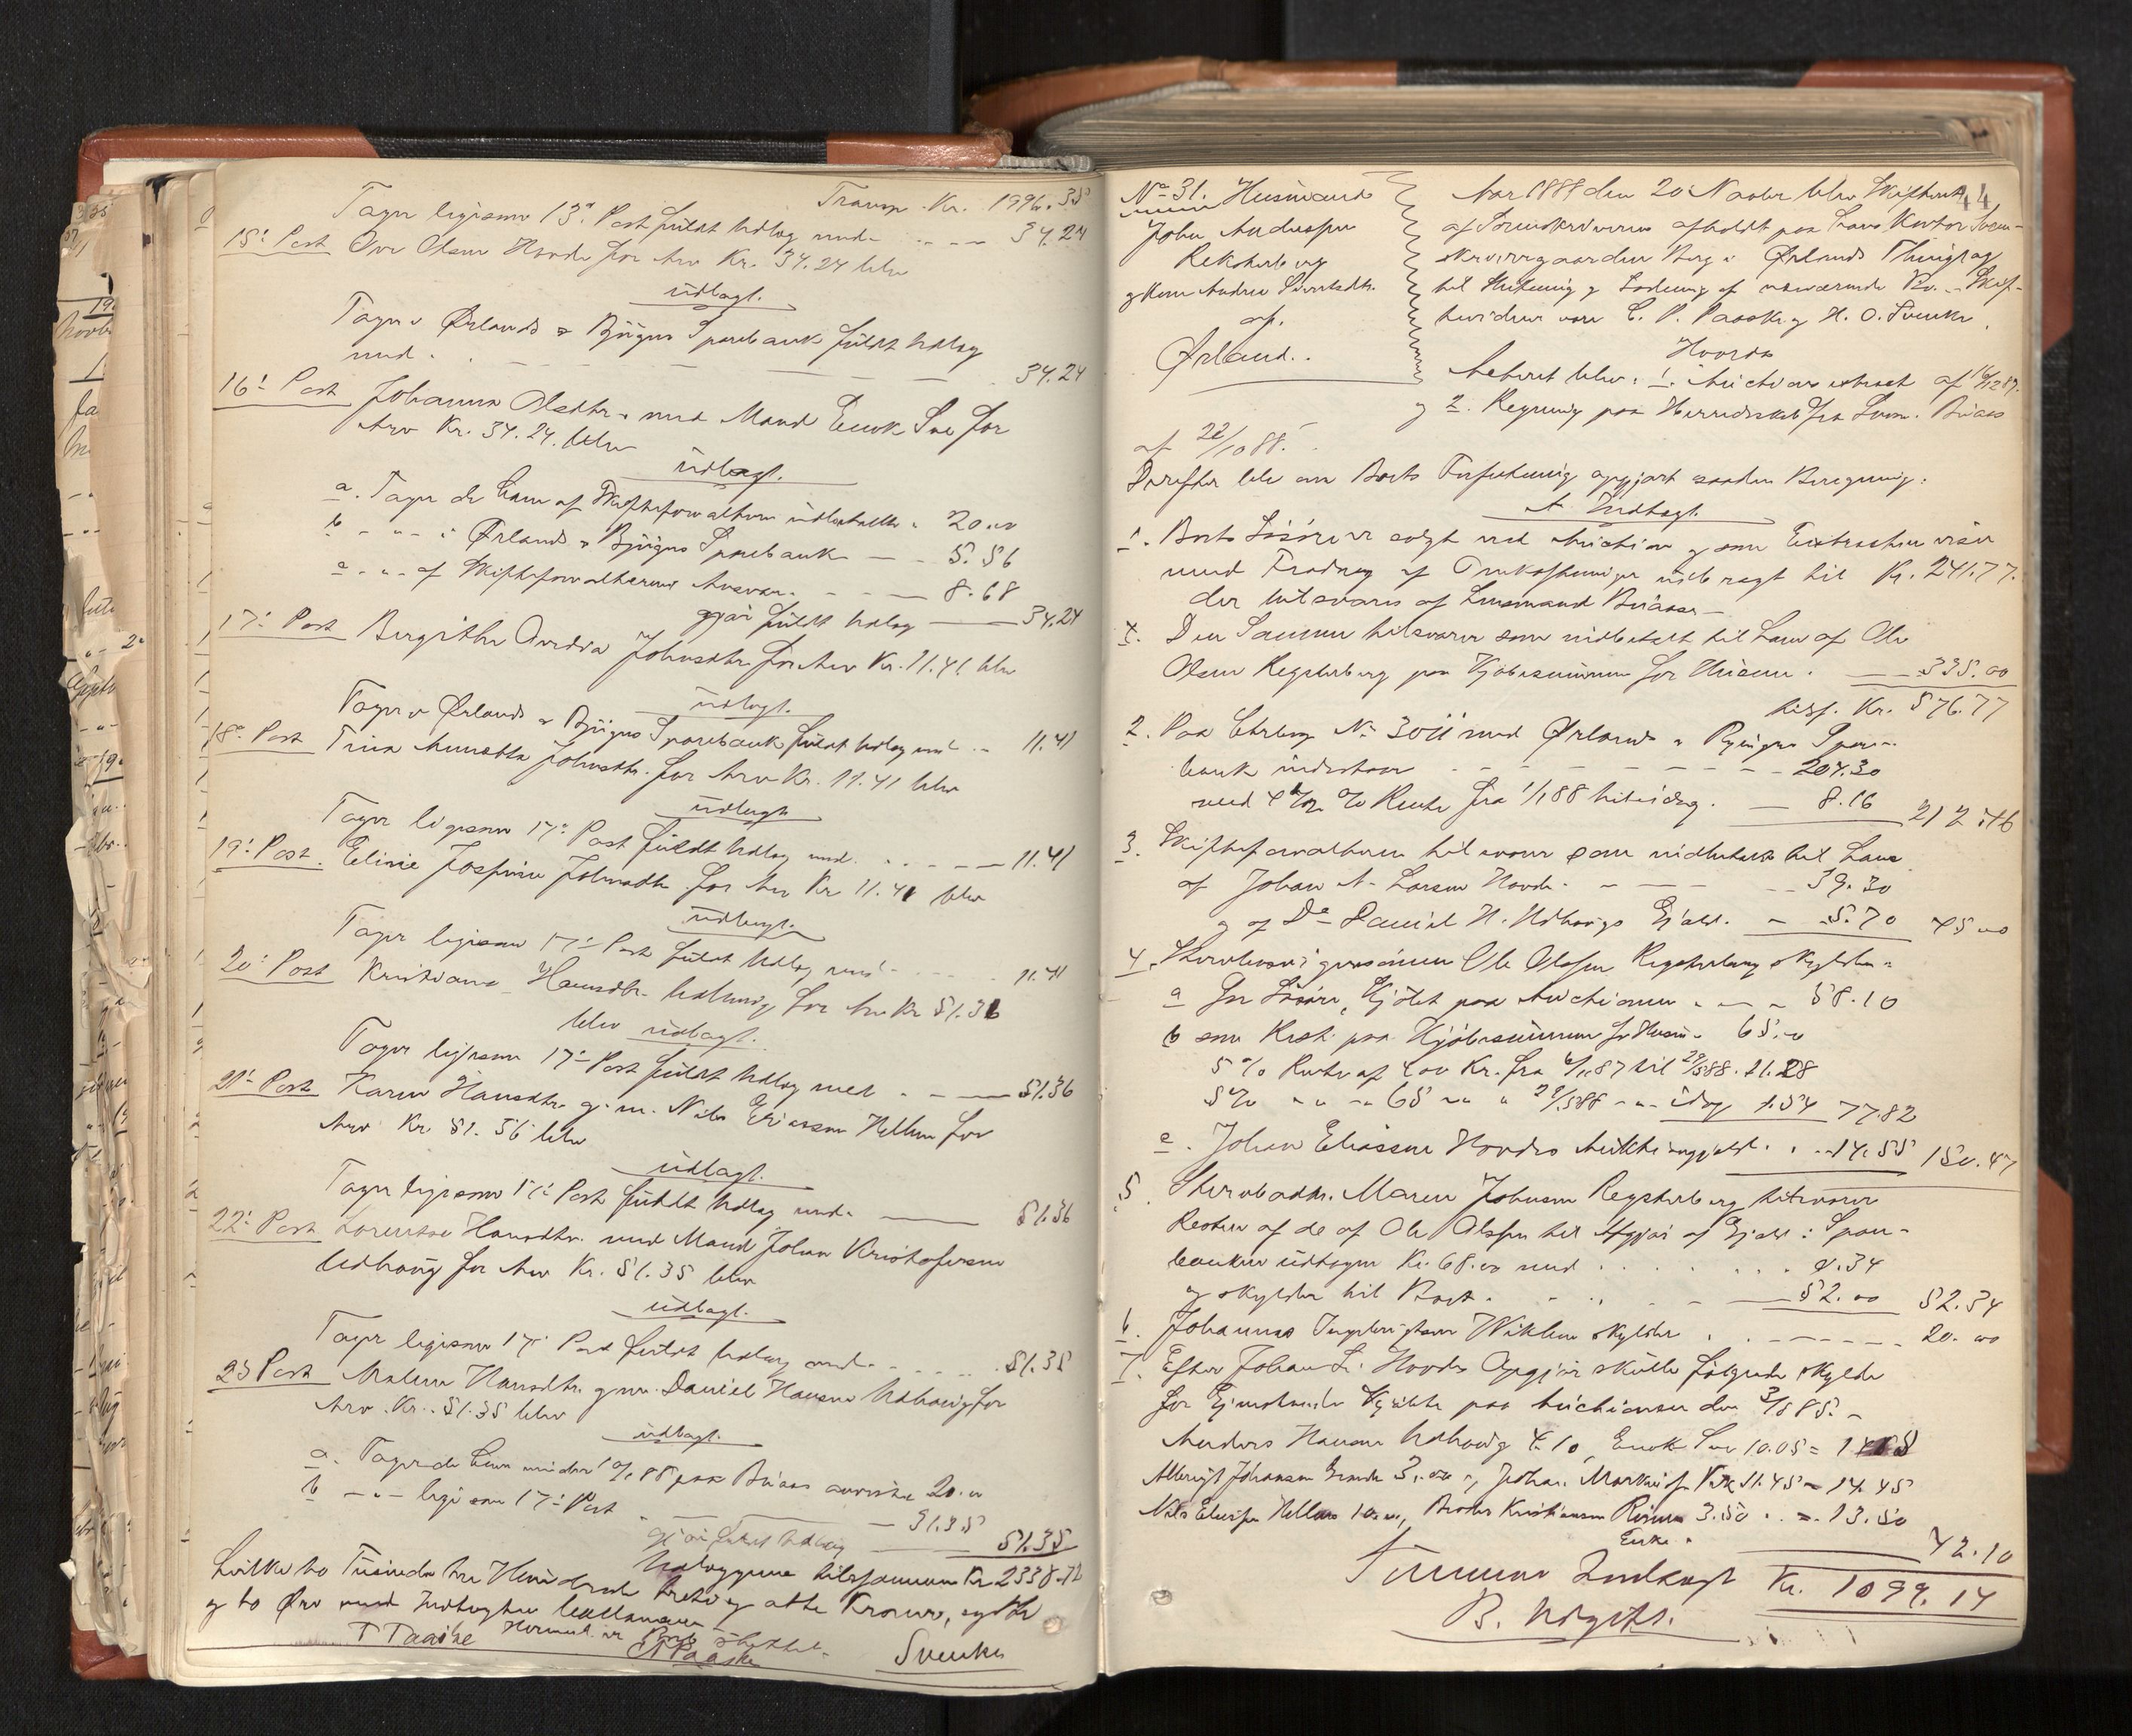 Transp. Kr. 1996.35
Tager ligesom 13de Post fuldt Udlæg med - 34.24
15: Post Ove Olsen Hovde for Arv Kr. 34.24 blev
udlagt.
Tager i Ørlands & Bjugns Sparebank fuldt Udlæg
med - 34.24
16: Post Johanna Olsdtr. med Mand Enok Sve for
Arv Kr. 34.24. blev
udlagt.
a. Tager de ham af Skifteforvalteren udbetalte 20.00
b - " - i Ørlands & Bjugns Sparebank - 5.56
c - " - af Skifteforvalterens Ansvar - 8.68
gjør fuldt Udlæg - 34.24
17: Post Bergithe Ovedia Johnsdtr. for Arv Kr. 11.41 blev
udlagt.
Tager i Ørlands & Bjugns Sparebank fuldt Udlæg med - 11.41
18: Post Trina Annetta Johnsdtr. for Arv Kr. 11.41 blev
udlagt.
Tager ligesom 17: Post fuldt Udlæg med - 11.41
19: Post. Elisie Josfine Johnsdtr for Arv Kr 11.41 blev
udlagt.
Tager ligesom 17: Post fuldt Udlæg med - 11.41
20: Post Kristiane Hansdtr. Udhaug for Arv Kr 51.36
blev udlagt.
Tager ligesom 17: Post fuldt Udlæg med - 51.36
21: Post Karen Hansdtr. g. m. Nils Eriassen Hellem for
Arv Kr 51.36 blev
udlagt.
Tager ligesom 17: Post fuldt Udlæg med - 51.36
22: Post Lorentse Hansdtr. med Mand Johan Kristofersen
Udhaug for Arv Kr. 51.35 blev
udlagt.
Tager ligesom 17: Post fuldt Udlæg med - 51.35
23 Post Malene Hansdtr. g m. Daniel Hansen Udhaug for
Arv. Kr. 51.35 blev
udlagt.
a. Tager de ham under 88 paa Buaas anviste 20.00
b - " - ligesom 17: Post - 31.35
gjør fuldt Udlæg - 51.35
Udlæggene tilsammen Kr. 2338.72
hvilke to Tusinde tre Hundrede tretti og otte Kroner, sytti
og to Øre med Indtægten balancerer
T Paaske
C P Paaske
Svenke
44
No 31. Husmand
John Andersen
Reksterberg
og Kone Andrea Sivertsdtr.
af.
Ørland.
Aar 1888 den 20 Novbr blev Skifteret
af Sorenskriveren afholdt paa hans Kontor Soren-
skrivergaarden Berg i Ørlands Thinglag
til Slutning og Lodning af nærværende Bo. - Skif-
tevidner vare C. P. Paaske og H. O. Svenke
Hvorda
Acteret blev: 1. Auctions extract af 16/12 87.
og 2. Regning paa Herredskab fra Lensm. Buaas
af 22/10 88.
Derefter blev om Boets Forfatning opgjort saadan Beregning:
A. Indtægt.
1. Boets Løsøre er solgt ved Auction og som Extracten viser
med Fradrag af Omkostninger udbragt til Kr. 241.77.
der tilsvares af Lensmand Buaas -
Den Samme tilsvarer som indbetalt til ham af Ole
Olsen Regsterberg paa Kjøbesummen for Husene. - 335.00
tilsf. Kr. 576.77
2. Paa Contrabog No 3011 med Ørlands & Bjugns Spare-
bank indestaar - 204.30
med 4 1/2 % Rente fra 1/1 88 til idag. - 8.16 212.46
3. Skifteforvalteren tilsvarer som indbetalt til ham
af Johan A. Larsen Hovde - 39.30
og af Do Daniel H. Udhaugs Gjæld - 5.70 45.00
4. Stervbosvigersønnen Ole Olsen Regsterberg skylder:
a For Løsøre, Kjøbt paa Auctionen - 58.10
b som Rest paa Kjøbesummen for Husene 65.00
5 % Rente af 400 Kr. fra 6/1.87 til 28/3 88. 11.28
5 % - " - 65 - " - 28/3 88 - " - idag 1.54 77.82
c. Johan Eliassen Hovdes Auktionsgjæld - 14.55 150.47
5. Stervbodtr. Maren Johnsen Regsterberg tilsvarer
Resten af de af Ole Olsen til Afgjør af Gjæld i Spare-
banken udtagne Kr. 68.00 med - 0.34
og skylder til Boet - 52.00 52.34
6. Johannes Ingebrigtsen Wiklem skylder - 20.00
7. Efter Johan E. Hovdes Opgjør skulle følgende skylde
for Gjenstande kjøbte paa Auctionen den 3/5 85. -
Anders Hansen Udhaug 4.10, Enok Sve 10.05 =
Albrigt Johansen Grande 3.00, Johan Markus 11.45 = 14.45
Nils Eliassen Hellem 10.00, Anders Kristiansen Risens 3.50 = 13.50
Enke 42.10
Summa Indtægt Kr. 1099.14
B. Udgift.